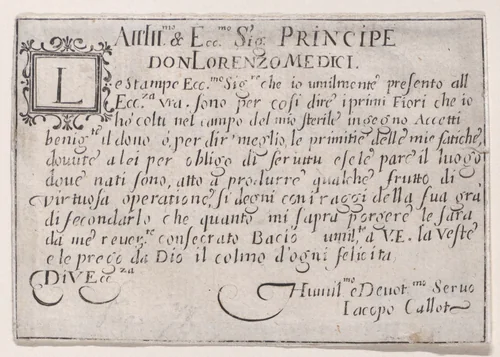 All Ill.mo & Ecc.mo Sig. PRINCIPE
DON LORENZO MEDICI.
Le Stampe Ecc.mo Sig.re che io umilmente presento all
Ecc.za Vra. sono per cosi dire i primi Fiori che io
ho colti nel campo del mio sterile ingegno Accetti
benig.te il dono o, per dir meglio, le primitie delle mie fatiche,
douute a lei per obligo di seruitu e se le pare il luogo
doue nati sono, atto a produrre qualche frutto di
virtuosa operatione, si degni con i raggi della sua gra
di fecondarlo che quanto mi sapra porgere le sara
da me reuer.te consecrato Bacio umil.te a V.E. la veste
e le prego da Dio il colmo d'ogni felicita,
Di V Ecc.za
Humil.mo e Deuot.mo Seruo
Iacopo Callot